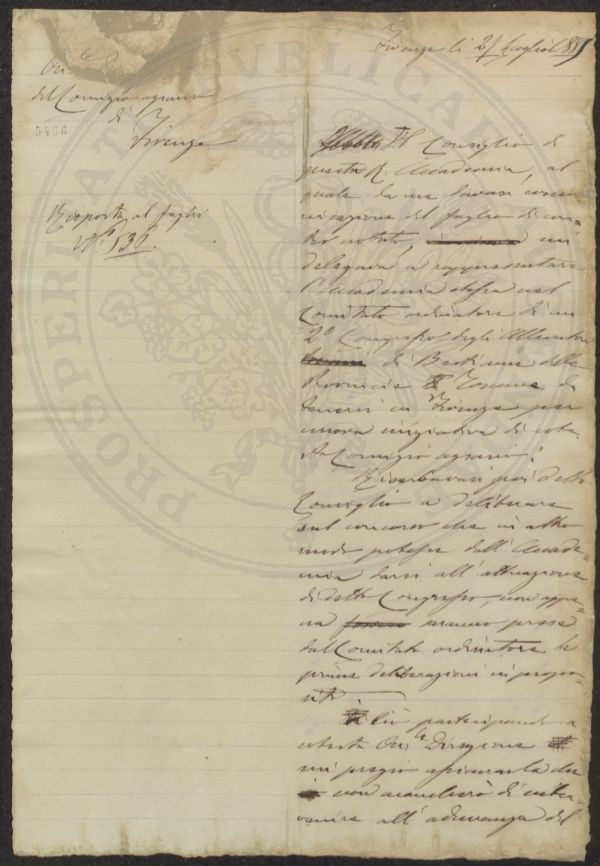 Firenze li 21 Luglio 1885
On.
del Comizio agrario
di
Firenze
5436
Risposta al foglio
N.º 536.
Il Consiglio di
questa R. Accademia, al
quale da me davasi comu
nicazione del foglio di con=
tro notato, mi
delegava a rappresentare
l'Accademia stessa nel
Comitato ordinatore di un
2º Congresso degli Allevatori
di Bestiame delle
Provincie Toscane da
tenersi in Firenze per
nuova iniziativa di cote
sto Comizio agrario.
Riserbavasi poi detto
Consiglio a deliberare
sul concorso che in altro
modo potesse dall'Accade=
mia darsi all'attuazione
di detto Congresso, non appe=
na saranno prese
dal Comitato ordinatore le
prime deliberazioni in propo=
sito.
Ciò partecipando a
cotesta On. Direzione
mi pregio assicurarla che
non mancherò di inter
venire all'adunanza del
PROSPERITATI PUBLICAE